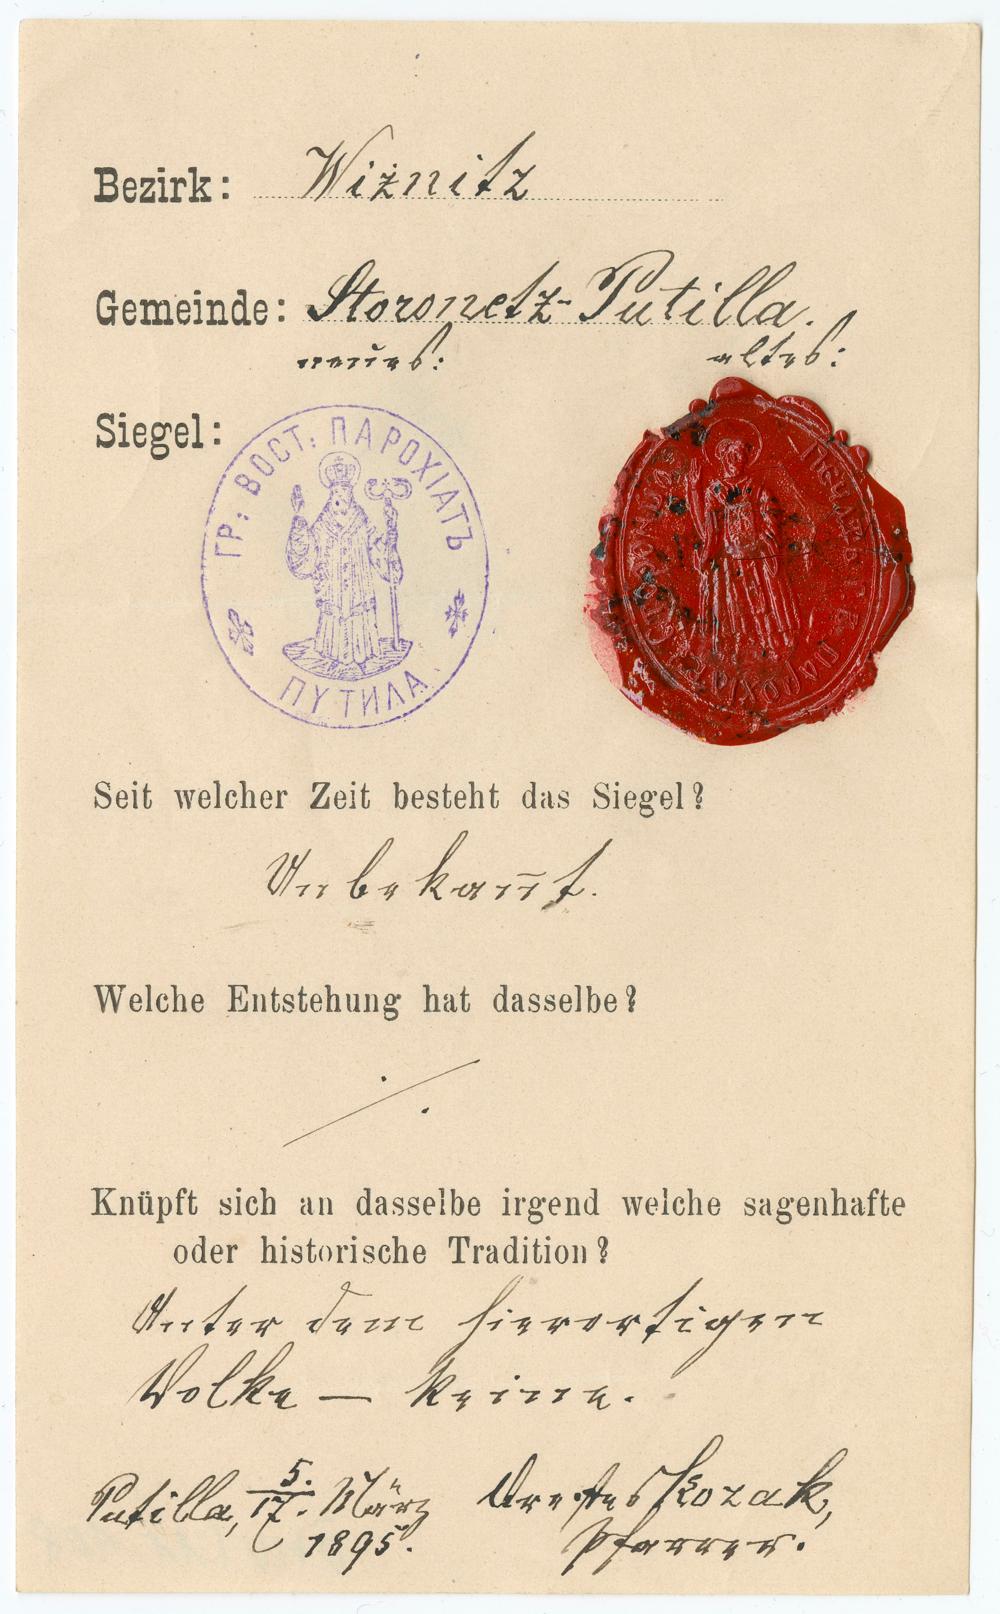 Bezirk: Wiżnitz
Gemeinde: Storonetz-Putilla.
neues: altes:
Siegel:
ГР: ВОСТ: ПАРОХІАТЪ
ПУТИЛА
Печать
Парохіат
Seit welcher Zeit besteht das Siegel?
Unbekan̄t.
Welche Entstehung hat dasselbe?
./.
Knüpft sich an dasselbe irgend welche sagenhafte
oder historische Tradition?
Unter dem hierortigen
Volke — keine.
Putilla, 5./17. März Orestes Kozak,
1895. Pfarrer.